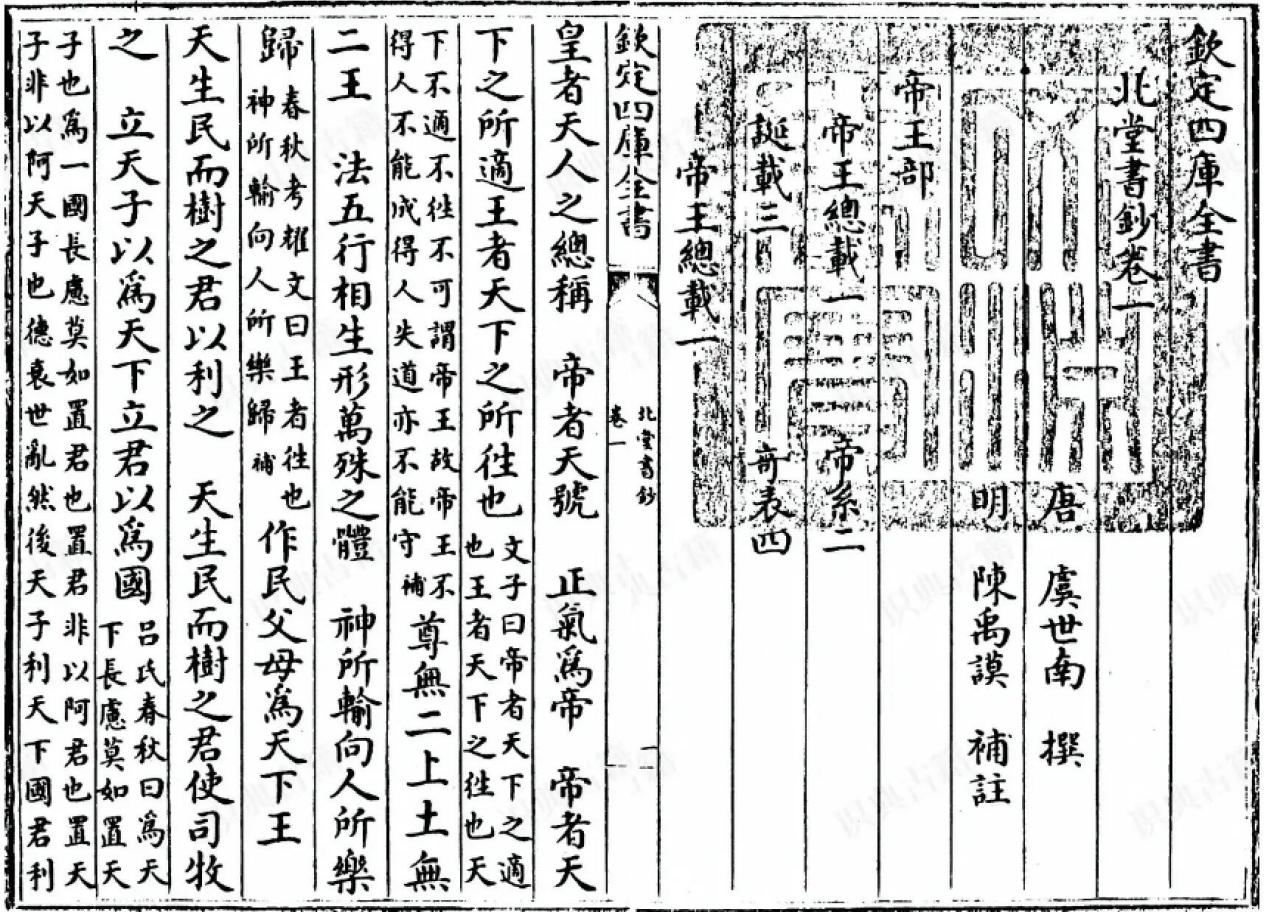 欽定四庫全書
北堂書鈔卷一
唐 虞世南 撰
明 陳禹謨 補註
帝王部
帝王總載一 帝系二
誕載三 奇表四
帝王總載一
欽定四庫全書
北堂書鈔
卷一
一
皇者天人之總稱 帝者天號 正氣爲帝 帝者天
下之所適王者天下之所徃也 文子曰帝者天下之適
也王者天下之徃也天
下不適不徃不可謂帝王故帝王不
得人不能成得人失道亦不能守 補 尊無二上土無
二王 法五行相生形萬殊之體 神所輸向人所樂
歸 春秋考耀文曰王者徃也
神所輸向人所樂歸 補 作民父母爲天下王
天生民而樹之君以利之 天生民而樹之君使司牧
之 立天子以爲天下立君以爲國 呂氏春秋曰爲天
下長慮莫如置天
子也爲一國長慮莫如置君也置君非以阿君也置天
子非以阿天子也德衰世亂然後天子利天下國君利